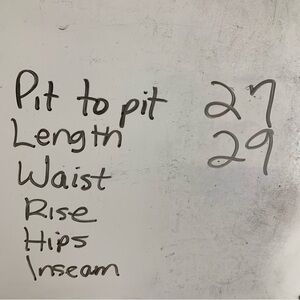 Pit to pit 27
Length 29
Waist
Rise
Hips
Inseam